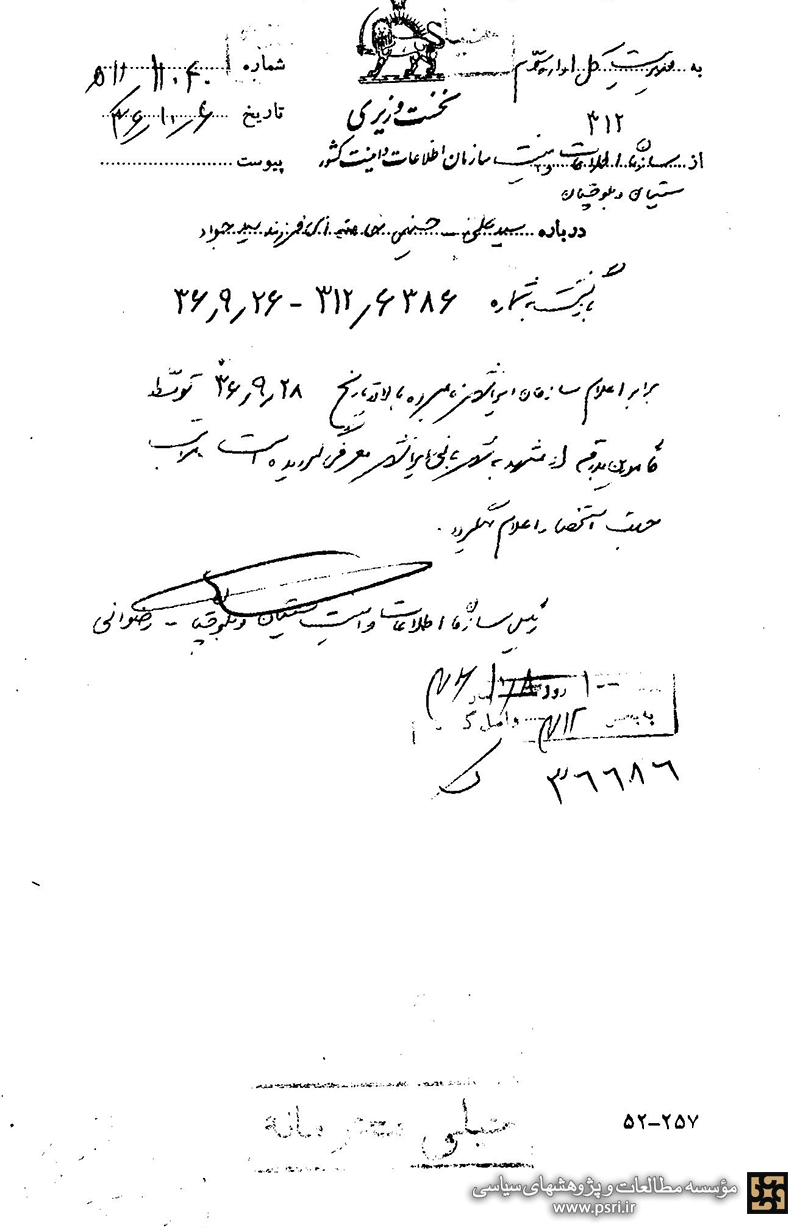 خیلی
به مدیریت کل اداره سوم
شماره ۱۱۰۴۰/ ۵۱۱
نخست وزیری
۳۱۲
تاریخ ۳۶/۱۰/۶
از سازمان اطلاعات و امنیت سازمان اطلاعات و امنیت کشور
پیوست
سیستان و بلوچستان
درباره سید علی حسینی خامنه ای فرزند سید جواد
بازگشت به شماره ۳۱۲/۶۳۸۶ - ۳۶/۹/۲۶
برابر اعلام سازمان ایرانشهر نامبرده بالا در تاریخ ۳۶/۹/۲۸ توسط
مامورین بدرقه از مشهد به شهربانی ایرانشهر معرفی گردیده است مراتب
جهت استحضار اعلام میگردد.
رئیس سازمان اطلاعات و امنیت سیستان و بلوچستان - رضوانی
روز
۳۱۲ واصل گردید
۳۶۶۸۶
خیلی محرمانه
۵۲-۲۵۷
مؤسسه مطالعات و پژوهشهای سیاسی
www.psri.ir